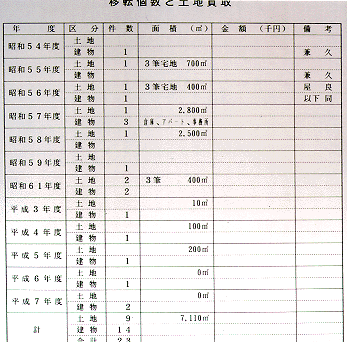 移転個数と土地買収
年度 区分 件数 面積 (㎡) 金額 (千円) 備考
昭和54年度 土地
建物 1 兼久
昭和55年度 土地 1 3筆宅地 700㎡
建物 兼久
昭和56年度 土地 1 3筆宅地 400㎡ 屋良
建物 1 以下同
昭和57年度 土地 1 2,800㎡
建物 3 倉庫、アパート、事務所
昭和58年度 土地 1 2,500㎡
建物
昭和59年度 土地
建物 1
昭和61年度 土地 2 3筆 400㎡
建物 2
平成3年度 土地 10㎡
建物 1
平成4年度 土地 100㎡
建物 1
平成5年度 土地 200㎡
建物 1
平成6年度 土地 0㎡
建物 1
平成7年度 土地 0㎡
建物 2
計 土地 9 7,110㎡
建物 14
合計 23